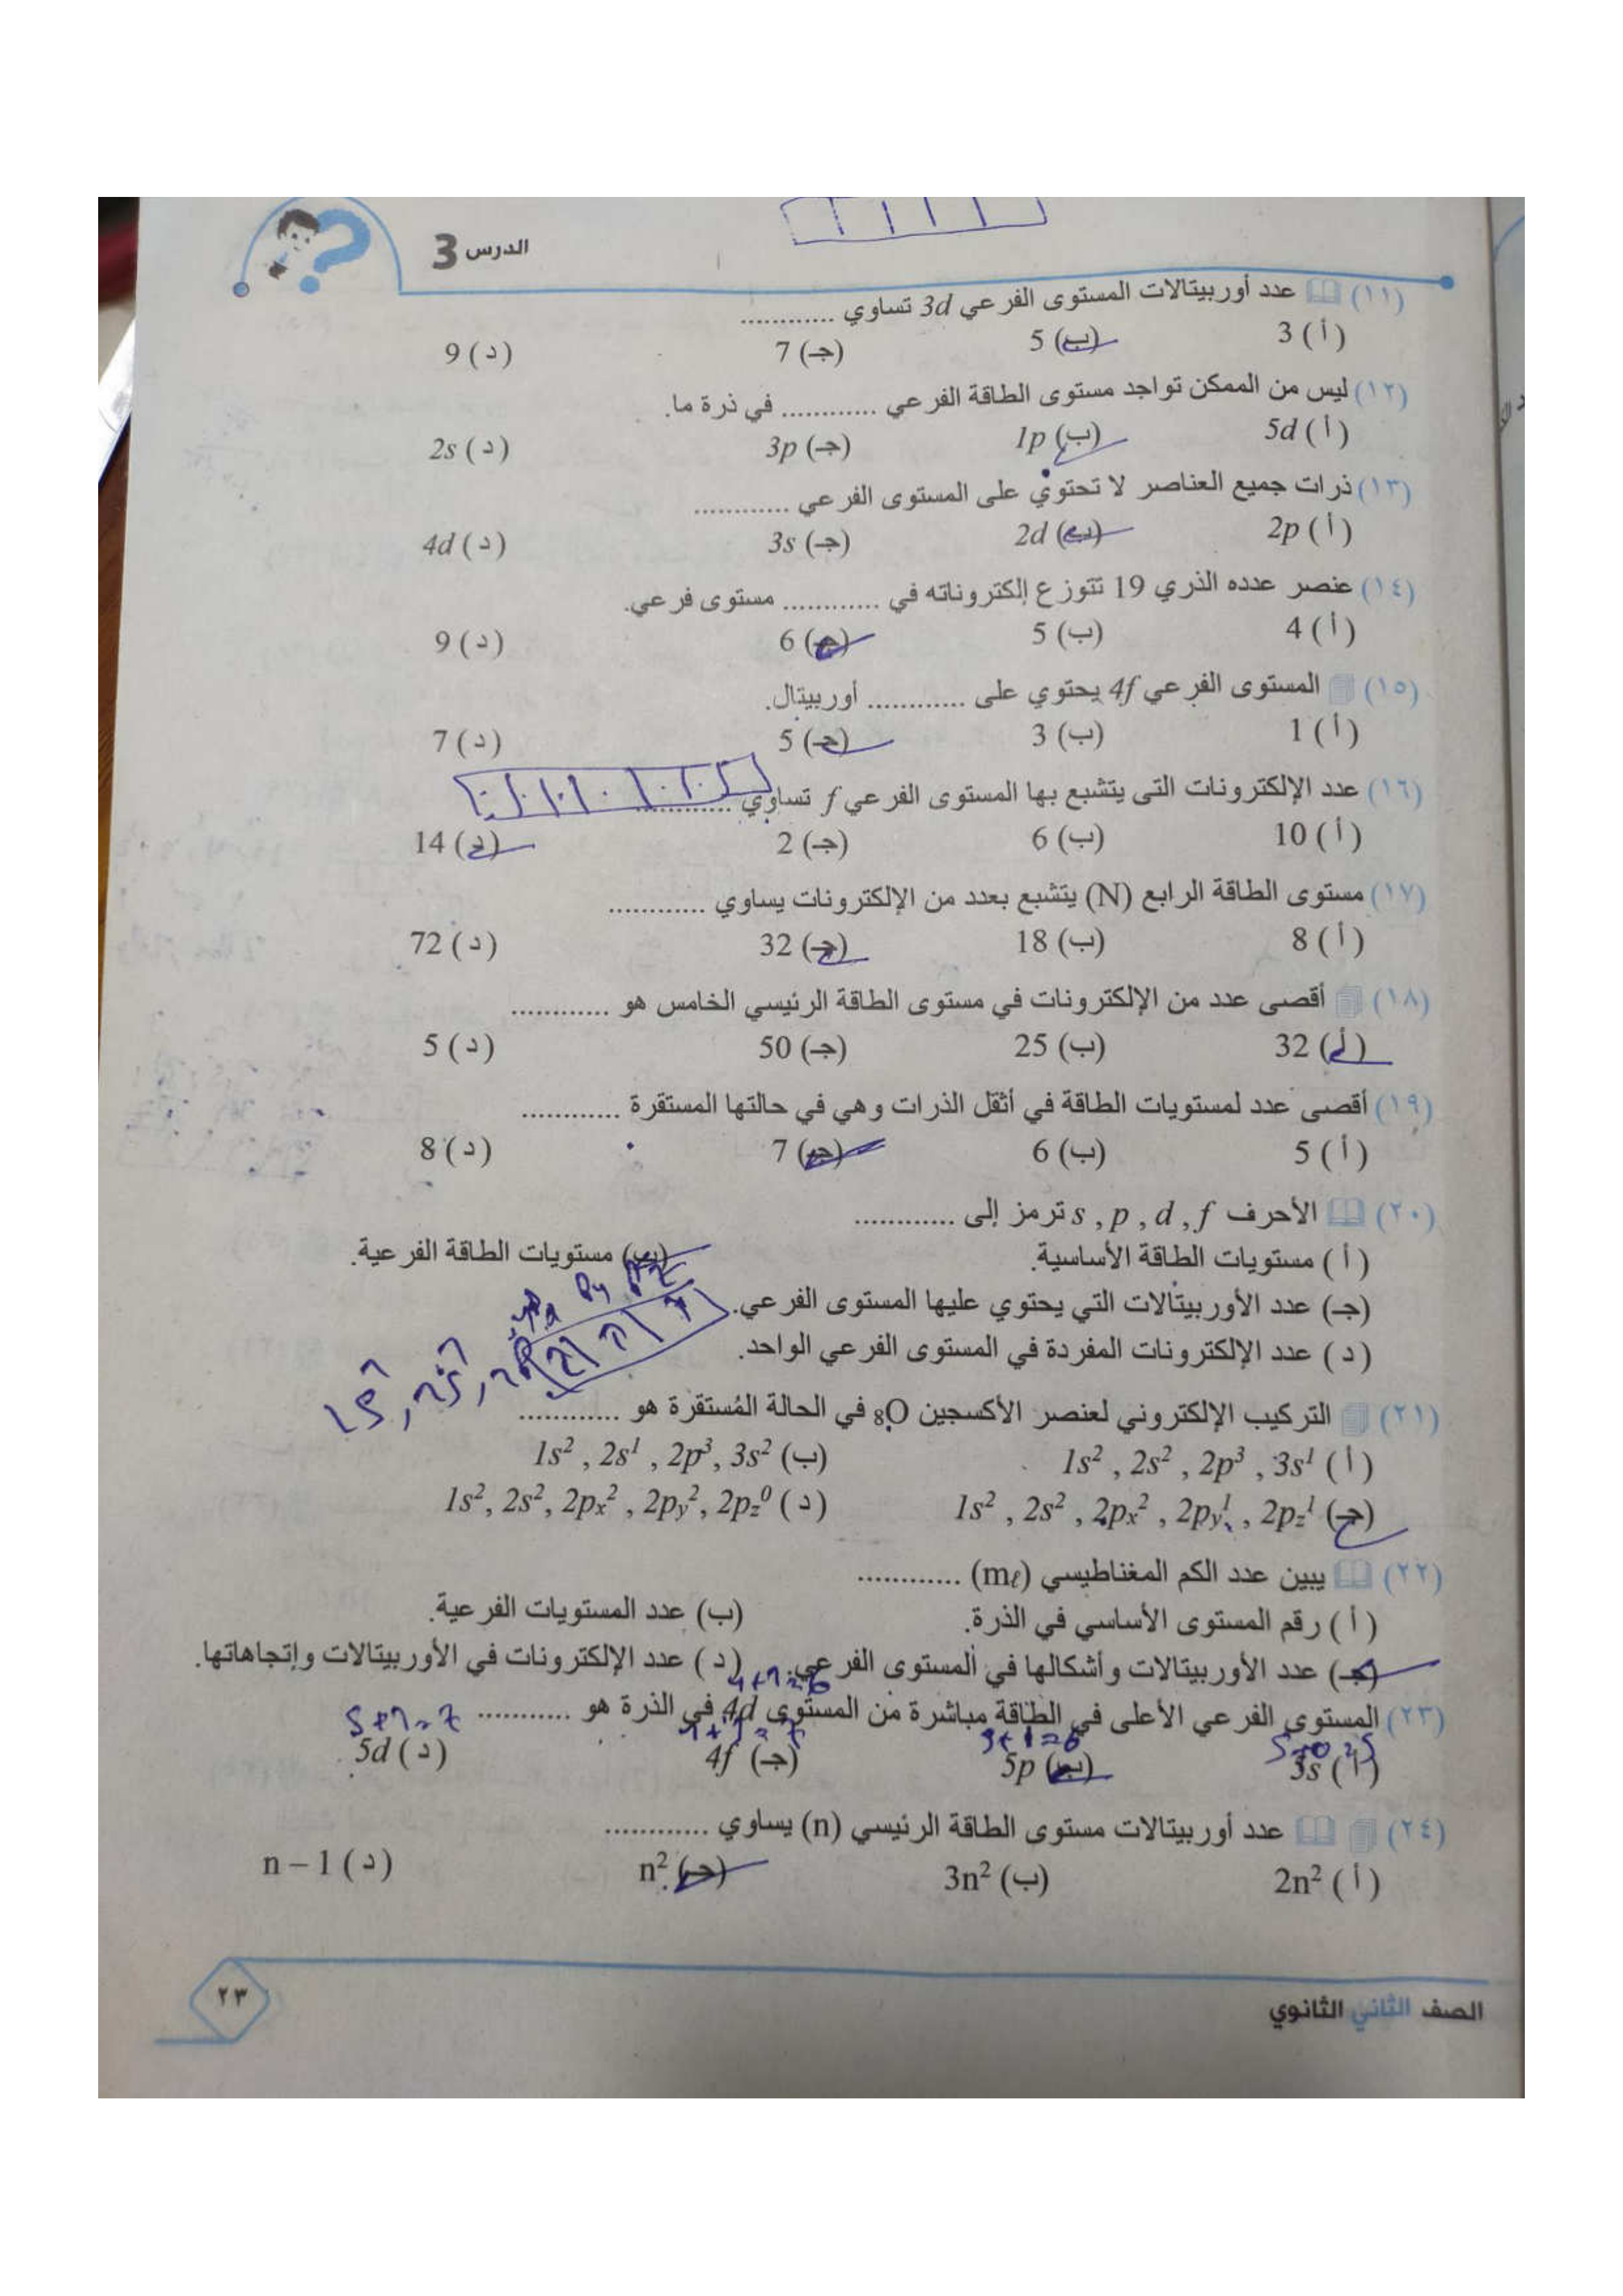 الدرس 3
(١١) عدد أوربيتالات المستوى الفرعي 3d تساوي ............
(أ) 3 (ب) 5 (جـ) 7 (د) 9
(١٢) ليس من الممكن تواجد مستوى الطاقة الفرعي ............ في ذرة ما.
(أ) 5d (ب) 1p (جـ) 3p (د) 2s
(١٣) ذرات جميع العناصر لا تحتوي على المستوى الفرعي ............
(أ) 2p (ب) 2d (جـ) 3s (د) 4d
(١٤) عنصر عدده الذري 19 تتوزع إلكتروناته في ............ مستوى فرعي.
(أ) 4 (ب) 5 (جـ) 6 (د) 9
(١٥) المستوى الفرعي 4f يحتوي على ............ أوربيتال.
(أ) 1 (ب) 3 (جـ) 5 (د) 7
(١٦) عدد الإلكترونات التى يتشبع بها المستوى الفرعي f تساوي ............
(أ) 10 (ب) 6 (جـ) 2 (د) 14
(١٧) مستوى الطاقة الرابع (N) يتشبع بعدد من الإلكترونات يساوي ............
(أ) 8 (ب) 18 (جـ) 32 (د) 72
(١٨) أقصى عدد من الإلكترونات في مستوى الطاقة الرئيسي الخامس هو ............
(أ) 32 (ب) 25 (جـ) 50 (د) 5
(١٩) أقصى عدد لمستويات الطاقة في أثقل الذرات وهي في حالتها المستقرة ............
(أ) 5 (ب) 6 (جـ) 7 (د) 8
(٢٠) الأحرف s , p , d , f ترمز إلى ............
(أ) مستويات الطاقة الأساسية. (ب) مستويات الطاقة الفرعية.
(جـ) عدد الأوربيتالات التي يحتوي عليها المستوى الفرعي.
(د) عدد الإلكترونات المفردة في المستوى الفرعي الواحد.
(٢١) التركيب الإلكتروني لعنصر الأكسجين ₈O في الحالة المُستقرة هو ............
(أ) 1s² , 2s² , 2p³ , 3s¹ (ب) 1s² , 2s¹ , 2p³, 3s²
(جـ) 1s² , 2s² , 2pₓ² , 2py¹ , 2pz¹ (د) 1s², 2s², 2pₓ² , 2py², 2pz⁰
(٢٢) يبين عدد الكم المغناطيسي (mℓ) ............
(أ) رقم المستوى الأساسي في الذرة. (ب) عدد المستويات الفرعية.
(جـ) عدد الأوربيتالات وأشكالها في المستوى الفرعي. (د) عدد الإلكترونات في الأوربيتالات وإتجاهاتها.
4+2=6
(٢٣) المستوى الفرعي الأعلى في الطاقة مباشرة من المستوى 4d في الذرة هو ...........
5+0=5 5+1=6 4+3=7 5+2=7
(أ) 3s (ب) 5p (جـ) 4f (د) 5d
(٢٤) عدد أوربيتالات مستوى الطاقة الرئيسي (n) يساوي ............
(أ) 2n² (ب) 3n² (جـ) n² (د) n – 1
الصف الثاني الثانوي
٢٣